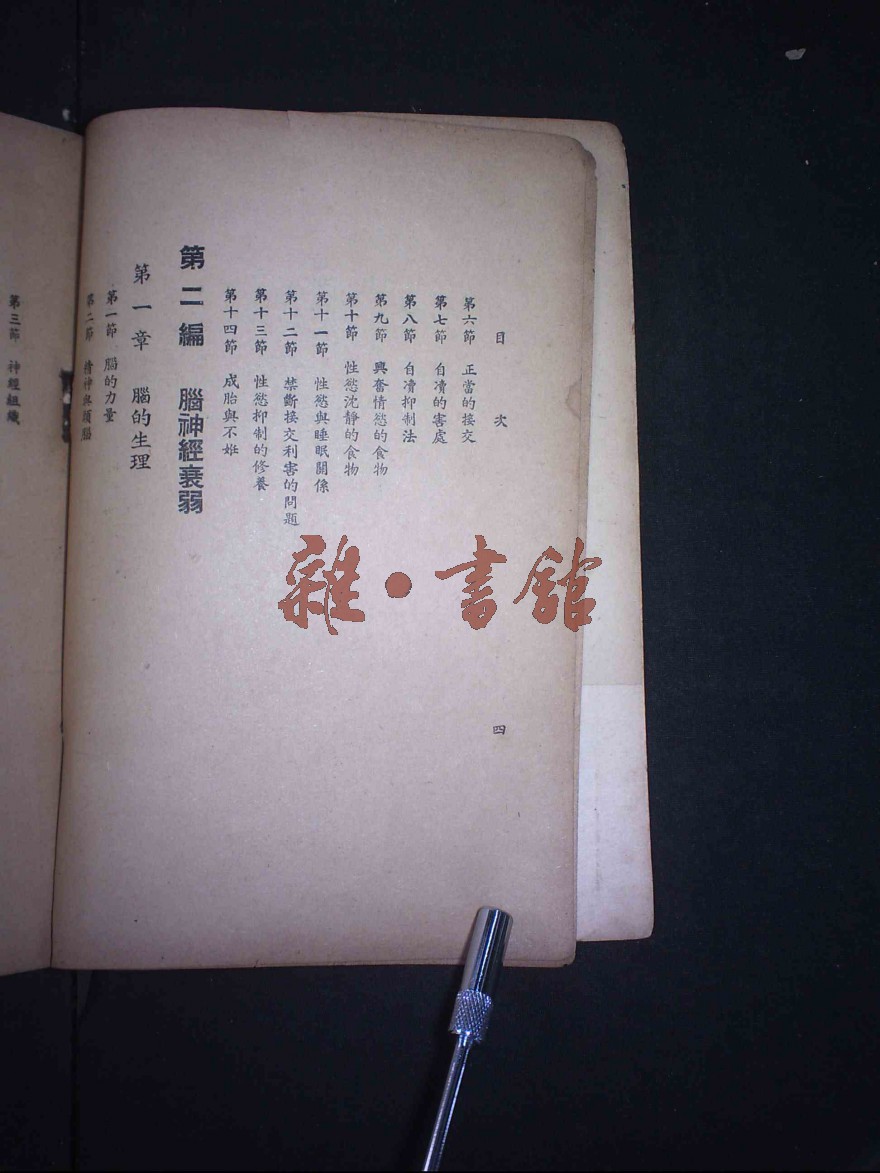 目次
四
第六節 正當的接交
第七節 自凟的害處
第八節 自凟抑制法
第九節 興奮情慾的食物
第十節 性慾沈靜的食物
第十一節 性慾與睡眠關係
第十二節 禁斷接交利害的問題
第十三節 性慾抑制的修養
第十四節 成胎與不姙
第二編 腦神經衰弱
第一章 腦的生理
第一節 腦的力量
第二節 精神與頭腦
第三節 神經組織
雜·書館